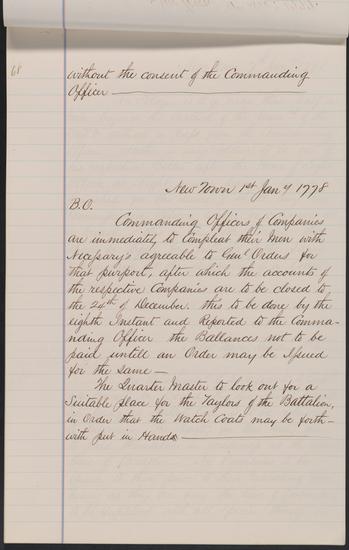 68
without the consent of the Commanding
Officer
New Town 1st Jany 1778
B.O.
Commanding Officers of Companies
are immediately to compleat their Men with
Necessary's agreeable to Genl Orders for
that purport, after which the accounts of
the respective Companies are to be closed to
the 24th of December. this to be done by the
eighth Instant and Reported to the Comma-
nding Officer the Ballances not to be
paid untill an Order may be Issued
for the same —
The Quarter Master to look out for a
Suitable place for the Taylors of the Battalion,
in Order that the Watch Coats may be forth-
with put in Hands